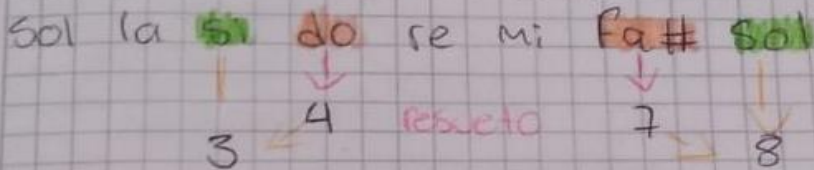 Sol la si do re mi fa# sol
4 resueto 7
3 8